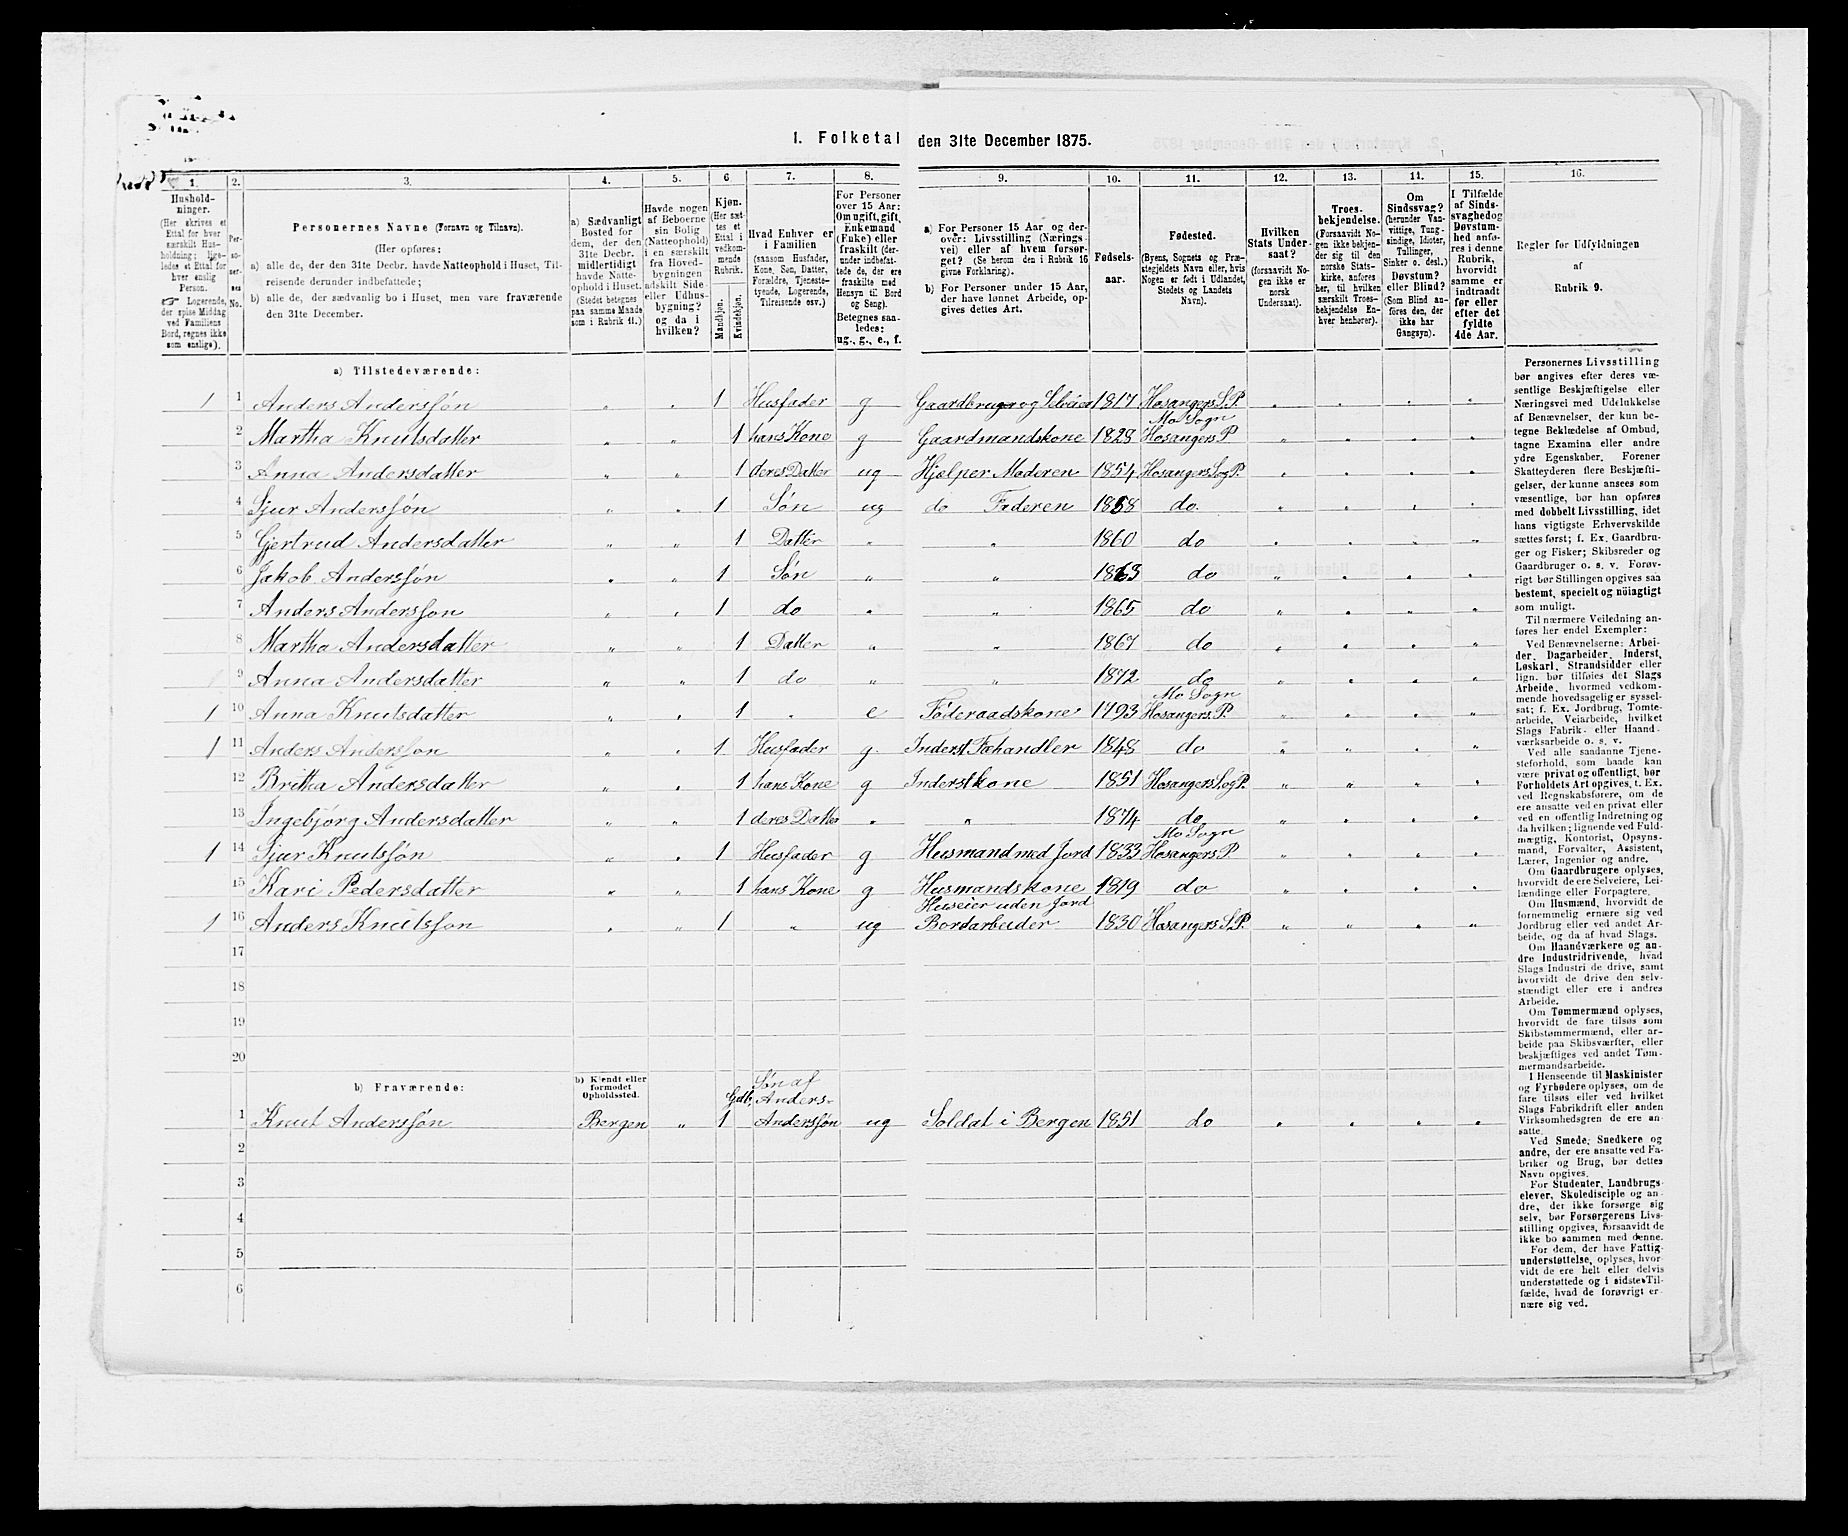 I. Folketal den 31te December 1875.
1. 2. 3. 4. 5. 6 7. 8. 9. 10. 11. 12. 13. 14. 15. 16.
Hushold-
ninger.
(Her skrives et
Ettal for hver
særskilt Hus-
holdning; lige-
ledes et Ettal for
hver enslig
Person.
☞ Logerende,
der spise Middag
ved Familiens
Bord, regnes ikke
som enslige).
Per-
so-
ner-
nes
No.
Personernes Navne (Fornavn og Tilnavn).
(Her opføres:
a) alle de, der den 31te Decbr. havde Natteophold i Huset, Til-
reisende derunder indbefattede;
b) alle de, der sædvanlig bo i Huset, men vare fraværende
den 31te December.
a) Sædvanligt
Bosted for
dem, der den
31te Decbr.
midlertidigt
havde Natte-
ophold i Huset.
(Stedet betegnes
paa samme Maade
som i Rubrik 11.)
Havde nogen
af Beboerne
sin Bolig
(Natteophold)
i en særskilt
fra Hoved-
bygningen
adskilt Side-
eller Udhus-
bygning?
og da i
hvilken?
Kjøn.
(Her sæt-
tes et
Ettal i
vedkom-
mende
Rubrik.
Mandkjøn.
Kvindekjøn.
Hvad Enhver er
i Familien
(saasom Husfader,
Kone, Søn, Datter,
Forældre, Tjeneste-
tyende, Logerende,
Tilreisende osv.)
For Personer
over 15 Aar:
Om ugift, gift,
Enkemand
(Enke) eller
fraskilt (der-
under indbefat-
tede de, der ere
fraskilte med
Hensyn til Bord
og Seng).
Betegnes saa-
ledes:
ug., g., e., f.
a) For Personer 15 Aar og der-
over: Livsstilling (Nærings-
vei) eller af hvem forsør-
get? (Se herom den i Rubrik 16
givne Forklaring).
b) For Personer under 15 Aar,
der have lønnet Arbeide, op-
gives dettes Art.
Fødsels-
aar.
Fødested.
(Byens, Sognets og Præ-
stegjeldets Navn eller, hvis
Nogen er født i Udlandet,
Stedets og Landets
Navn).
Hvilken
Stats Under-
saat?
(forsaavidt No-
gen ikke er
norsk
Undersaat).
Troes-
bekjendelse.
(Forsaavidt No-
gen ikke bekjen-
der sig til den
norske Stats-
kirke, anføres
her, til hvilken
særskilt Troes-
bekjendelse En-
hver henhører).
Om
Sindssvag?
(herunder Van-
vittige, Tung-
sindige, Idioter,
Tullinger,
Sinker o. desl.)
Døvstum?
eller Blind?
(Som Blind an-
føres den, der
ikke har
Gangsyn).
I Tilfælde
af Sinds-
svaghed og
Døvstum-
hed anfø-
res i denne
Rubrik,
hvorvidt
samme er
indtraadt
før eller
efter det
fyldte
4de Aar.
Regler før Udfyldningen
af
Rubrik 9.
a) Tilstedeværende:
1 1 Anders Anderssøn „ „ 1 Husfader g Gaardbruger og Selveier 1817 Hosangers S. P. „ „ „ „
2 Martha Knutsdatter „ „ 1 hans Kone g Gaardmandskone 1828 Mo Sogn Hosangers P. „ „ „ „
3 Anna Andersdatter „ „ 1 deres Datter ug Hjælper Moderen 1854 Hosangers Sog P. „ „ „ „
4 Sjur Anderssøn „ „ 1 Søn ug do Faderen 1858 do. „ „ „ „
5 Gjertrud Andersdatter „ „ 1 Datter „ „ 1860 do „ „ „ „
6 Jakob Anderssøn „ „ 1 Søn „ „ 1863 do „ „ „ „
7 Anders Anderssøn „ „ 1 do „ „ 1865 do „ „ „ „
8 Martha Andersdatter „ „ 1 Datter „ „ 1867 do „ „ „ „
9 Anna Andersdatter „ „ 1 do „ „ 1872 do „ „ „ „
1 10 Anna Knutsdatter „ „ 1 „ e Føderaadskone 1793 Mo Sogn Hosangers P. „ „ „ „
1 11 Anders Anderssøn „ „ 1 Husfader g. Inderst Fæhandler 1848 do „ „ „ „
12 Britha Andersdatter „ „ 1 hans Kone g Inderstkone 1851 Hosangers Sog P. „ „ „ „
13 Ingebjørg Andersdatter „ „ 1 deres Datter „ „ 1874 do „ „ „ „
1 14 Sjur Knutssøn „ „ 1 Husfader g Husmand med Jord 1833 Mo Sogn Hosangers P. „ „ „ „
15 Kari Pedersdatter „ „ 1 hans Kone g Husmandskone 1819 do „ „ „ „
1 16 Anders Knutssøn „ „ 1 „ ug Huseier uden Jord Bordarbeider 1830 Hosangers S. P. „ „ „ „
17
18
19
20
b) Fraværende:
b) Kjendt eller
formodet
Opholdssted.
1 Knut Anderssøn Bergen „ 1 Søn af Gdbr. Anders Anderssøn ug Soldat i Bergen 1851 do „ „ „ „
2
3
4
5
6
Personernes Livsstilling
bør angives efter deres væ-
sentlige Beskjæftigelse eller
Næringsvei med Udelukkelse
af Benævnelser, der kun be-
tegne Beklædelse af Ombud,
tagne Examina eller andre
ydre Egenskaber. Forener
Skatteyderen flere Beskjæfti-
gelser, der kunne ansees som
væsentlige, bør han opføres
med dobbelt Livsstilling, idet
hans vigtigste Erhvervskilde
sættes først; f. Ex. Gaardbru-
ger og Fisker; Skibsreder og
Gaardbruger o. s. v. Forøv-
rigt bør Stillingen opgives saa
bestemt, specielt og nöiagtigt
som muligt.
Til nærmere Veiledning an-
føres her endel Exempler:
Ved Benævnelserne: Arbei-
der, Dagarbeider, Inderst,
Løskarl, Strandsidder eller
lign. bør tilføies det Slags
Arbeide, hvormed vedkom-
mende hovedsagelig er syssel-
sat; f. Ex. Jordbrug, Tomte-
arbeide, Veiarbeide, hvilket
Slags Fabrik- eller Haand-
værksarbeide o. s. v.
Ved alle saadanne Tjene-
steforhold, som baade kan
være privat og offentligt, bør
Forholdets Art opgives, t. Ex.
ved Regnskabsførere, om de
ere ansatte ved en privat eller
ved en offentlig Indretning og
da hvilken; lignende ved Fuld-
mægtig, Kontorist, Opsyns-
mand, Forvalter, Assistent,
Lærer, Ingeniør og andre.
Om Gaardbrugere oplyses,
hvorvidt de ere Selveiere, Lei-
lændinge eller Forpagtere.
Om Husmænd, hvorvidt de
fornemmelig ernære sig ved
Jordbrug eller ved andet Ar-
beide, og da af hvad Slags.
Om Haandværkere og an-
dre Industridrivende, hvad
Slags Industri de drive, samt
hvorvidt de drive den selv-
stændigt eller ere i andres
Arbeide.
Om Tømmermænd oplyses,
hvorvidt de fare tilsøs som
Skibstømmermænd, eller ar-
beide paa Skibsværfter, eller
beskjæftiges ved andet Tøm-
mermandsarbeide.
I Henseende til Maskinister
og Fyrbødere oplyses, om de
fare tilsøs eller ved hvilket
Slags Fabrikdrift eller anden
Virksomhedsgren de ere an-
satte.
Ved Smede, Snedkere og
andre, der ere ansatte ved Fa-
briker og Brug, bør dettes
Navn opgives.
For Studenter, Landbrugs-
elever, Skoledisciple og an-
dre, der ikke forsørge sig
selv, bør Forsørgerens Livs-
stilling opgives, forsaavidt de
ikke bo sammen med denne.
For dem, der have Fattig-
understøttelse, oplyses, hvor-
vidt de ere helt eller delvis
understøttede og i sidste Til-
fælde, hvad de forøvrigt er-
nære sig ved.